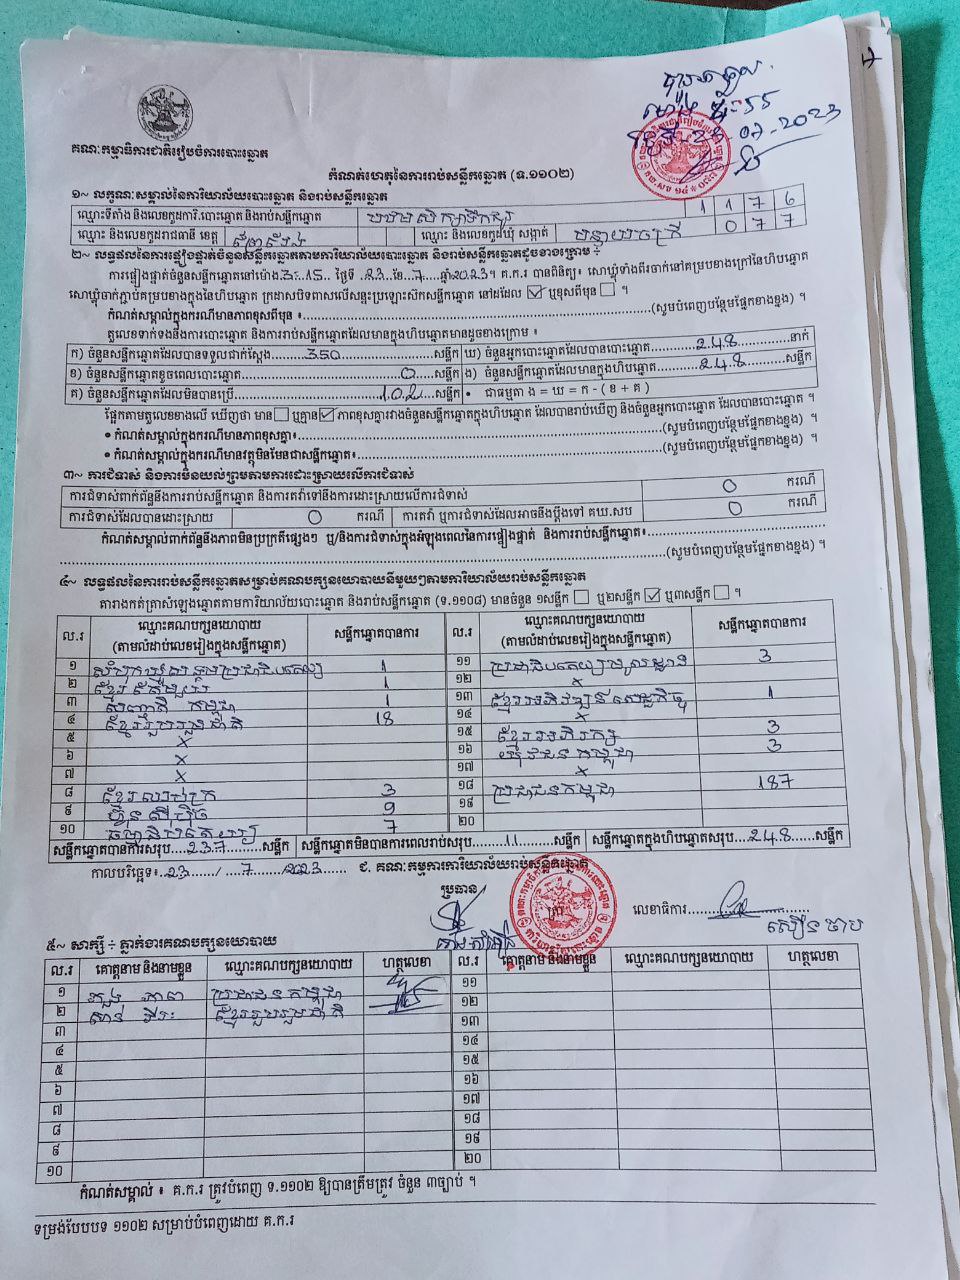 គណៈកម្មាធិការជាតិរៀបចំការបោះឆ្នោត
កំណត់ហេតុនៃការរាប់សន្លឹកឆ្នោត (ទ.១១០២)
07-2023
១~ លក្ខណៈសម្គាល់នៃការិយាល័យបោះឆ្នោត និងរាប់សន្លឹកឆ្នោត
ឈ្មោះទីតាំង និងលេខកូដការិ.បោះឆ្នោត និងរាប់សន្លឹកឆ្នោត បឋមសិក្សាទឹកជ្រៅ 1 1 7 6
ឈ្មោះ និងលេខកូដរាជធានី ខេត្ត ឈ្មោះ និងលេខកូដឃុំ សង្កាត់ បន្ទាយចក្រី 0 7 7
២~ លទ្ធផលនៃការផ្ទៀងផ្ទាត់ចំនួនសន្លឹកឆ្នោតតាមការិយាល័យបោះឆ្នោត និងរាប់សន្លឹកឆ្នោតដូចខាងក្រោម ÷
ការផ្ទៀងផ្ទាត់ចំនួនសន្លឹកឆ្នោតនៅម៉ោង 3:15 ថ្ងៃទី 23 ខែ 7 ឆ្នាំ 2023។ គ.ក.រ បានពិនិត្យ៖ សោឃ្លុំទាំងពីរចាក់នៅគម្របខាងក្រៅនៃហិបឆ្នោត
សោឃ្លុំចាក់ភ្ជាប់គម្របខាងក្នុងនៃហិបឆ្នោត ក្រដាសបិទពាសលើសន្ទះប្រឡោះស៊កសន្លឹកឆ្នោត នៅដដែល ☑ ឬខុសពីមុន ☐ ។
កំណត់សម្គាល់ក្នុងករណីមានភាពខុសពីមុន ៖ (សូមបំពេញបន្ថែមផ្នែកខាងខ្នង) ។
តួលេខទាក់ទងនឹងការបោះឆ្នោត និងការរាប់សន្លឹកឆ្នោតដែលមានក្នុងហិបឆ្នោតមានដូចខាងក្រោម ៖
ក) ចំនួនសន្លឹកឆ្នោតដែលបានទទួលជាក់ស្តែង 350 សន្លឹក ឃ) ចំនួនអ្នកបោះឆ្នោតដែលបានបោះឆ្នោត 248 នាក់
ខ) ចំនួនសន្លឹកឆ្នោតខូចពេលបោះឆ្នោត 0 សន្លឹក ង) ចំនួនសន្លឹកឆ្នោតដែលមានក្នុងហិបឆ្នោត 248 សន្លឹក
គ) ចំនួនសន្លឹកឆ្នោតដែលមិនបានប្រើ 102 សន្លឹក • ជាធម្មតា ង = ឃ = ក - ( ខ + គ )
ផ្អែកតាមតួលេខខាងលើ ឃើញថា មាន ☐ ឬគ្មាន ☑ ភាពខុសគ្នារវាងចំនួនសន្លឹកឆ្នោតក្នុងហិបឆ្នោត ដែលបានរាប់ឃើញ និងចំនួនអ្នកបោះឆ្នោត ដែលបានបោះឆ្នោត ។
• កំណត់សម្គាល់ក្នុងករណីមានភាពខុសគ្នា៖ (សូមបំពេញបន្ថែមផ្នែកខាងខ្នង) ។
• កំណត់សម្គាល់ក្នុងករណីមានវត្ថុមិនមែនជាសន្លឹកឆ្នោត៖ (សូមបំពេញបន្ថែមផ្នែកខាងខ្នង) ។
៣~ ការជំទាស់ និងការមិនយល់ព្រមតាមការដោះស្រាយលើការជំទាស់
ការជំទាស់ពាក់ព័ន្ធនឹងការរាប់សន្លឹកឆ្នោត និងការតវ៉ាទៅនឹងការដោះស្រាយលើការជំទាស់ 0 ករណី
ការជំទាស់ដែលបានដោះស្រាយ 0 ករណី ការតវ៉ា ឬការជំទាស់ដែលអាចនឹងប្តឹងទៅ គឃ.សប 0 ករណី
កំណត់សម្គាល់ពាក់ព័ន្ធនឹងភាពមិនប្រក្រតីផ្សេងៗ ឬ/និងការជំទាស់ក្នុងអំឡុងពេលនៃការផ្ទៀងផ្ទាត់ និងការរាប់សន្លឹកឆ្នោត៖
(សូមបំពេញបន្ថែមផ្នែកខាងខ្នង) ។
៤~ លទ្ធផលនៃការរាប់សន្លឹកឆ្នោតសម្រាប់គណបក្សនយោបាយនីមួយៗតាមការិយាល័យរាប់សន្លឹកឆ្នោត
តារាងកត់ត្រាសំឡេងឆ្នោតតាមការិយាល័យបោះឆ្នោត និងរាប់សន្លឹកឆ្នោត (ទ.១១០៨) មានចំនួន ១សន្លឹក ☐ ឬ២សន្លឹក ☑ ឬ៣សន្លឹក ☐ ។
ល.រ ឈ្មោះគណបក្សនយោបាយ (តាមលំដាប់លេខរៀងក្នុងសន្លឹកឆ្នោត) សន្លឹកឆ្នោតបានការ ល.រ ឈ្មោះគណបក្សនយោបាយ (តាមលំដាប់លេខរៀងក្នុងសន្លឹកឆ្នោត) សន្លឹកឆ្នោតបានការ
១ សំបុកឃ្មុំសង្គមប្រជាធិបតេយ្យ 1 ១១ ប្រជាធិបតេយ្យមូលដ្ឋាន 3
២ ខ្មែរតែមួយ 1 ១២ x
៣ សញ្ជាតិ កម្ពុជា 1 ១៣ ខ្មែរអភិវឌ្ឍន៍សេដ្ឋកិច្ច 1
៤ ខ្មែររួបរួមជាតិ 18 ១៤ x
៥ x ១៥ ខ្មែរអភិរក្ស 3
៦ x ១៦ យុវជនកម្ពុជា 3
៧ x ១៧ x
៨ ខ្មែរឈប់ក្រ 3 ១៨ ប្រជាជនកម្ពុជា 187
៩ ហ្វ៊ុនស៊ិនប៉ិច 9 ១៩
១០ ធម្មាធិបតេយ្យ 7 ២០
សន្លឹកឆ្នោតបានការសរុប 237 សន្លឹក សន្លឹកឆ្នោតមិនបានការពេលរាប់សរុប 11 សន្លឹក សន្លឹកឆ្នោតក្នុងហិបឆ្នោតសរុប 248 សន្លឹក
កាលបរិច្ឆេទ៖ 23 / 7 / 2023 ជ. គណៈកម្មការការិយាល័យរាប់សន្លឹកឆ្នោត
ប្រធាន លេខាធិការ
៥~ សាក្សី ÷ ភ្នាក់ងារគណបក្សនយោបាយ
ល.រ គោត្តនាម និងនាមខ្លួន ឈ្មោះគណបក្សនយោបាយ ហត្ថលេខា ល.រ គោត្តនាម និងនាមខ្លួន ឈ្មោះគណបក្សនយោបាយ ហត្ថលេខា
១ ប្រជាជនកម្ពុជា ១១
២ ខ្មែររួបរួមជាតិ ១២
៣ ១៣
៤ ១៤
៥ ១៥
៦ ១៦
៧ ១៧
៨ ១៨
៩ ១៩
១០ ២០
កំណត់សម្គាល់ ៖ គ.ក.រ ត្រូវបំពេញ ទ.១១០២ ឱ្យបានត្រឹមត្រូវ ចំនួន ៣ច្បាប់ ។
ទម្រង់បែបបទ ១១០២ សម្រាប់បំពេញដោយ គ.ក.រ